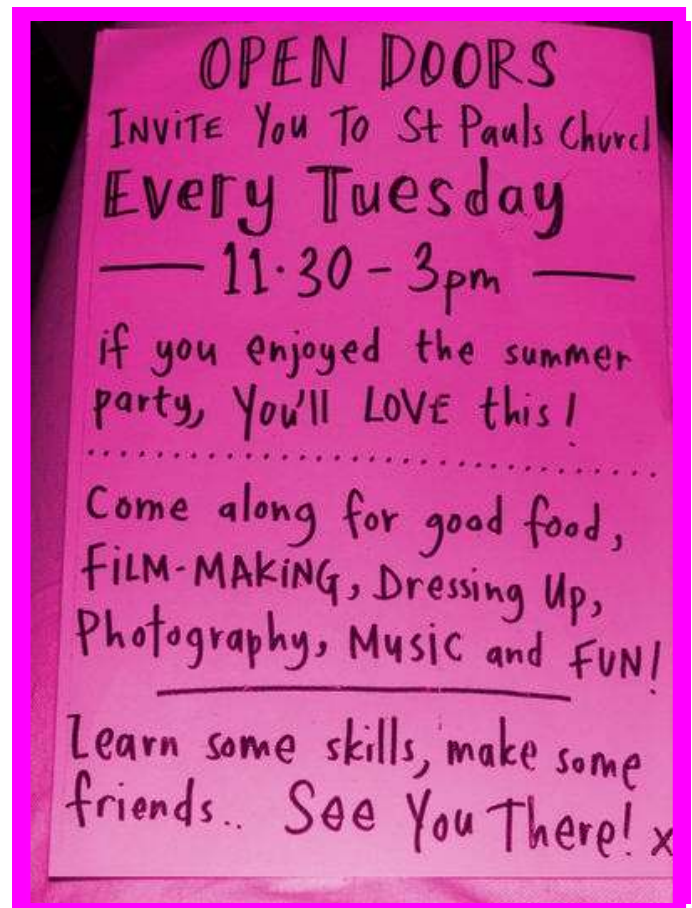 OPEN DOORS
INVITE You To St Pauls Church
Every Tuesday
11.30 - 3pm
if you enjoyed the summer
party, You'll LOVE this!
Come along for good food,
FiLM-MAKiNG, Dressing Up,
Photography, MUSIC and FUN!
Learn some skills, make some
friends.. See You There! x